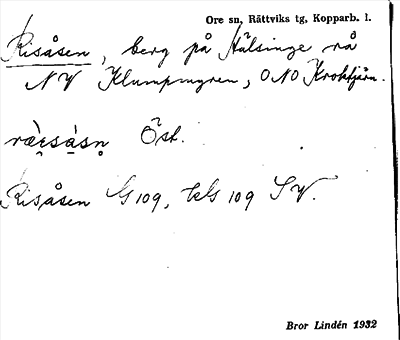 Ore sn, Rättviks tg, Kopparb. l.
Risåsen, berg på Hälsinge rå
NV Klumpmyren, ONO Kroktjärn.
Öst.
Risåsen G 109, 109 SV.
Bror Lindén 1932